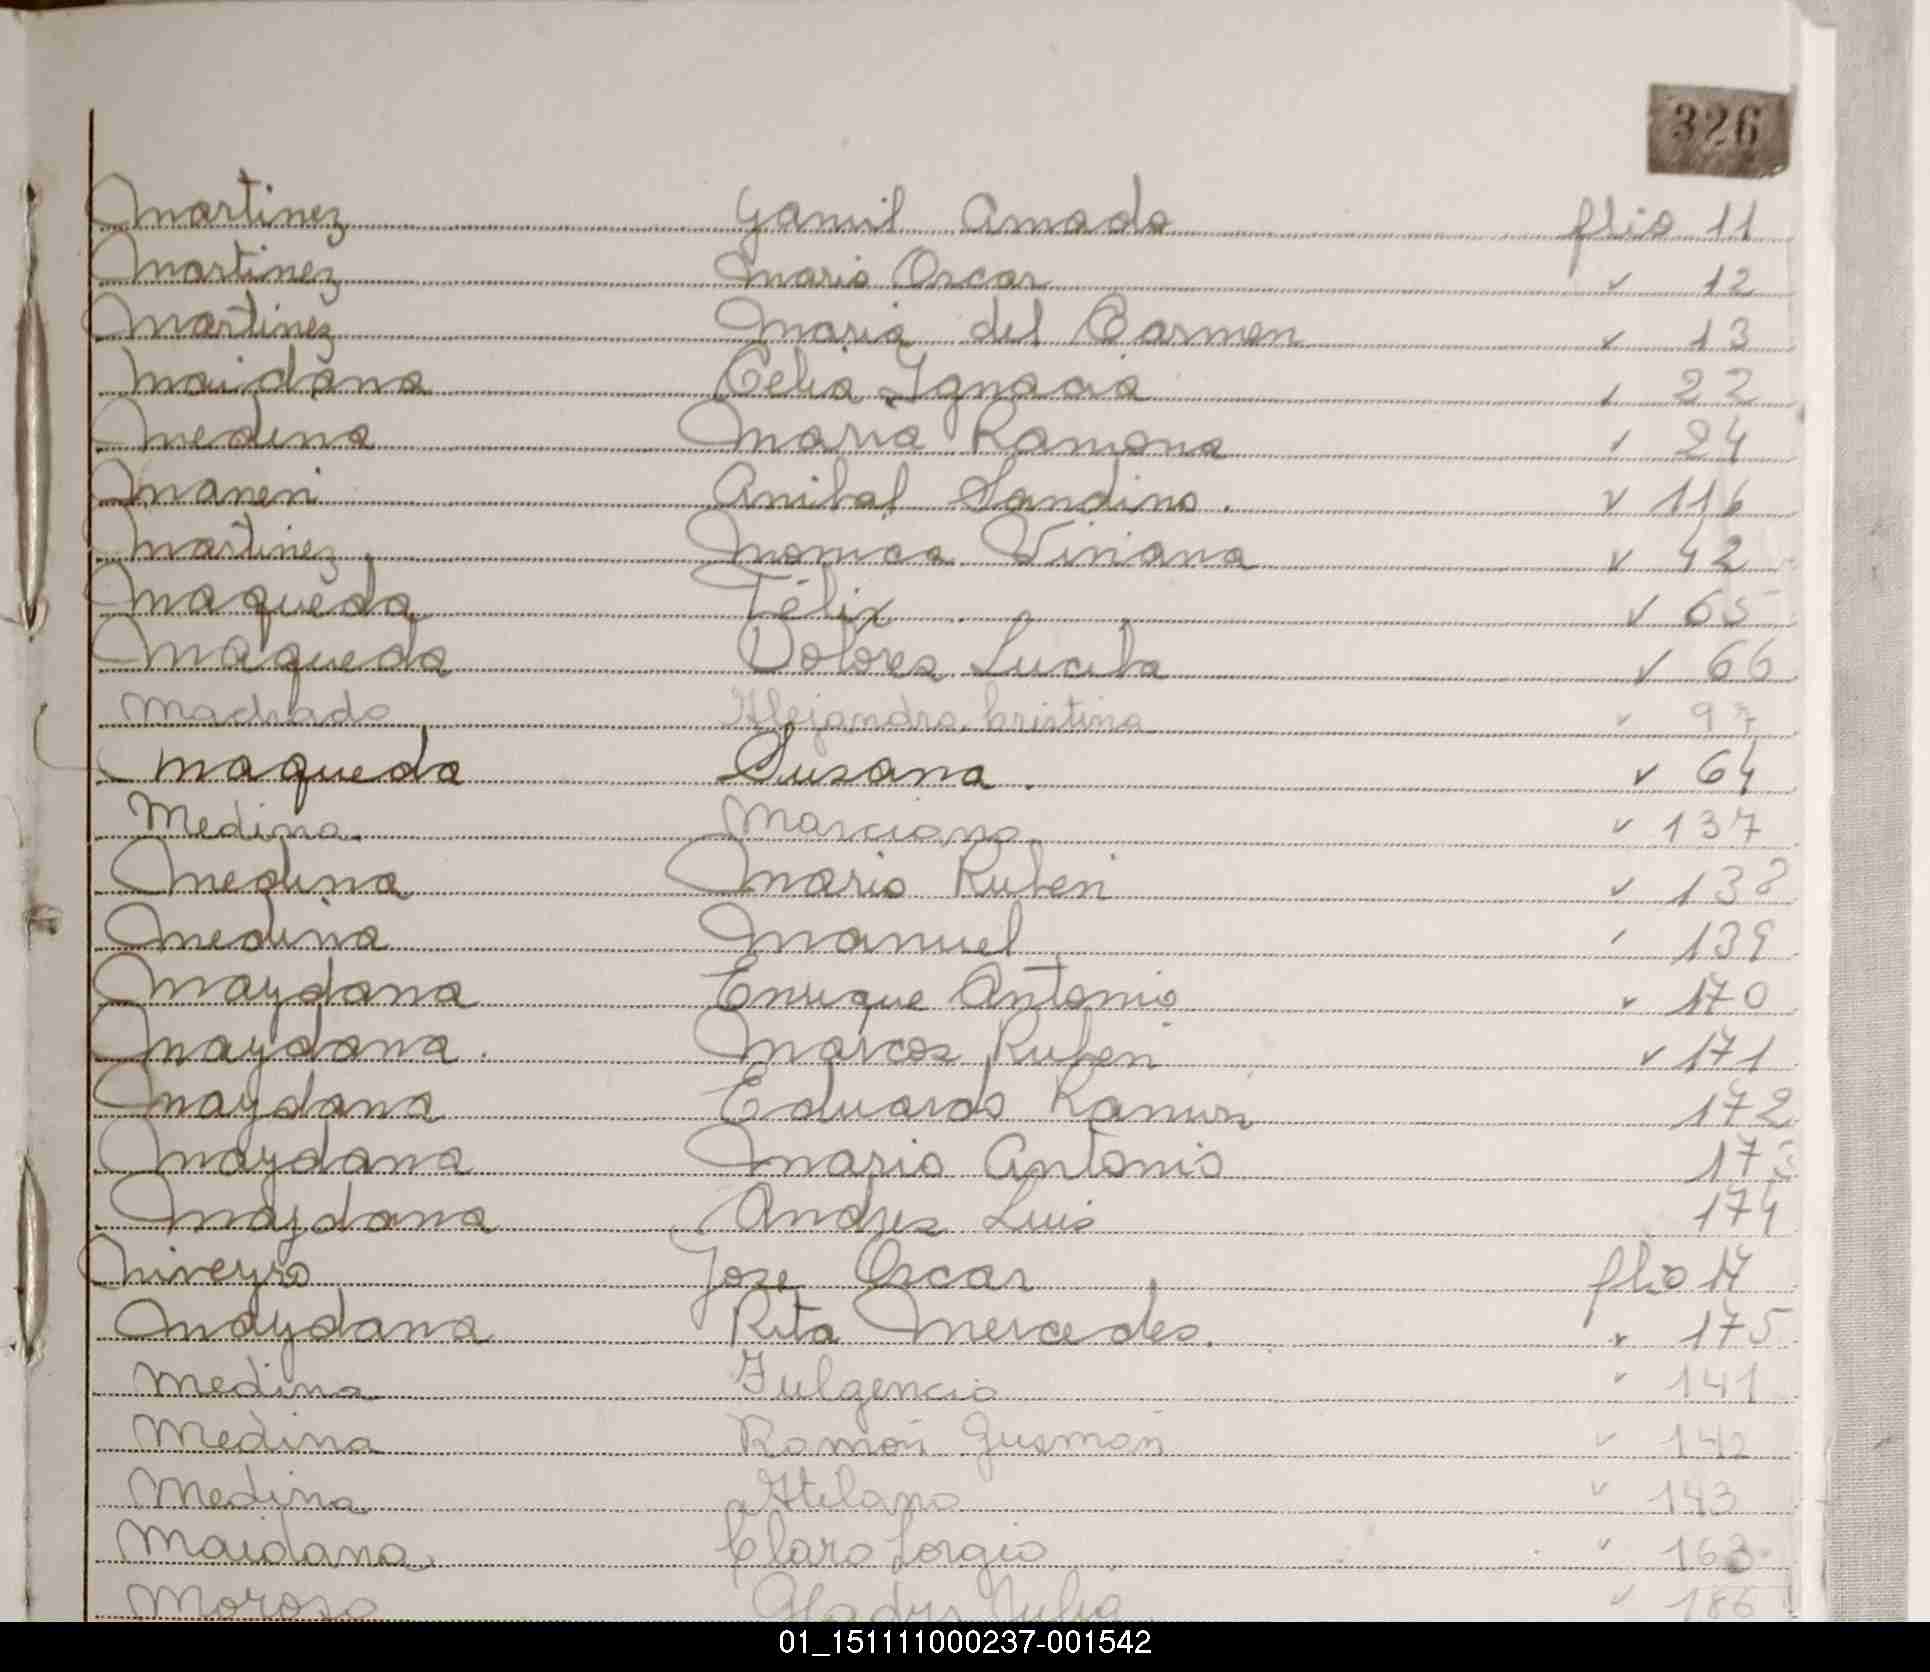 326
Martinez Yamil Amado flio 11
Martinez Mario Oscar " 12
Martinez Maria del Carmen " 13
Maidana Celia Ignacia " 22
Medina Maria Ramona " 24
Maneri Anibal Sandino. " 116
Martinez Monica Viviana " 42
Maqueda Félix " 65
Maqueda Dolores Lucila " 66
Machado Alejandra Cristina " 97
Maqueda Susana. " 64
Medina Marciano " 137
Medina Mario Ruben " 138
Medina Manuel " 139
Maydana Enrique Antonio " 170
Maydana. Marcos Ruben " 171
Maydana Eduardo Ramon 172
Maydana Mario Antonio 173
Maydana Andres Luis 174
Niveyro Jose Oscar flio 17
Maydana Rita Mercedes. " 175
Medina Fulgencio " 141
Medina Ramón Gusmán " 142
Medina Atilano " 143
Maidana Claro Sergio " 163
Moroso Gladys Julia " 186
01_151111000237-001542